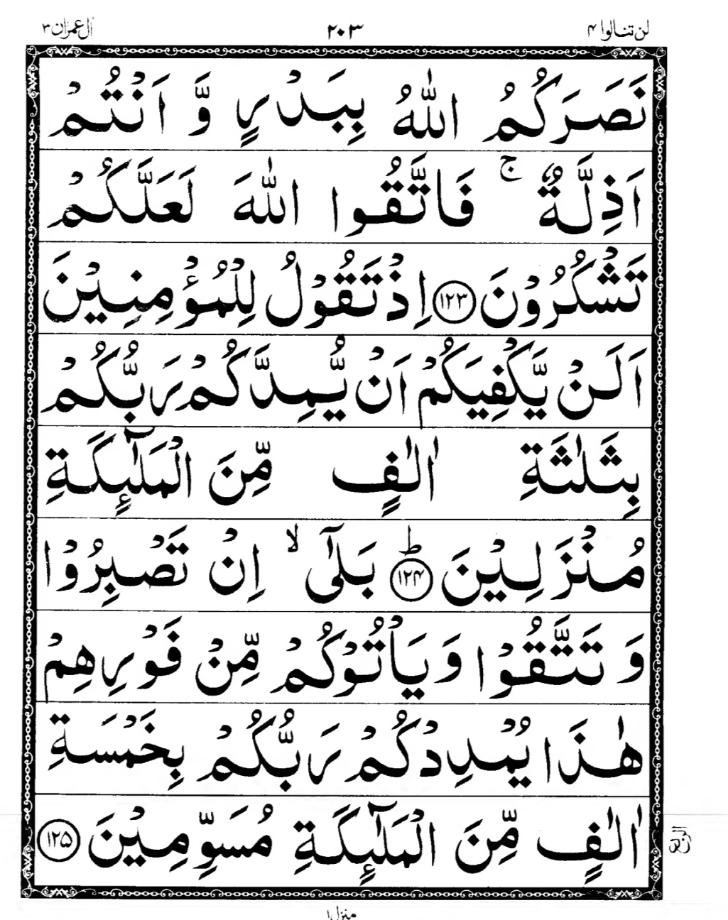 لن تنالوا ۴ ۲۰۳ اٰل عمرٰن ۳
نَصَرَكُمُ اللّٰهُ بِبَدْرٍ وَّ اَنْتُمْ
اَذِلَّةٌ ۚ فَاتَّقُوا اللّٰهَ لَعَلَّكُمْ
تَشْكُرُوْنَ ۝۱۲۳ اِذْ تَقُوْلُ لِلْمُؤْمِنِيْنَ
اَلَنْ يَّكْفِيَكُمْ اَنْ يُّمِدَّكُمْ رَبُّكُمْ
بِثَلٰثَةِ اٰلٰفٍ مِّنَ الْمَلٰٓئِكَةِ
مُنْزَلِيْنَ ؕ۝۱۲۴ بَلٰٓى ۙ اِنْ تَصْبِرُوْا
وَ تَتَّقُوْا وَ يَاْتُوْكُمْ مِّنْ فَوْرِهِمْ
هٰذَا يُمْدِدْكُمْ رَبُّكُمْ بِخَمْسَةِ
اٰلٰفٍ مِّنَ الْمَلٰٓئِكَةِ مُسَوِّمِيْنَ ۝۱۲۵
الربع
منزل ۱